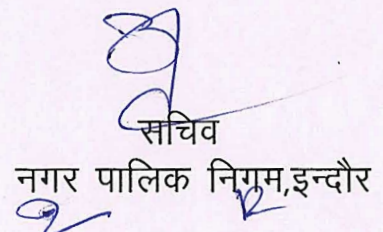 सचिव
नगर पालिक निगम,इन्दौर